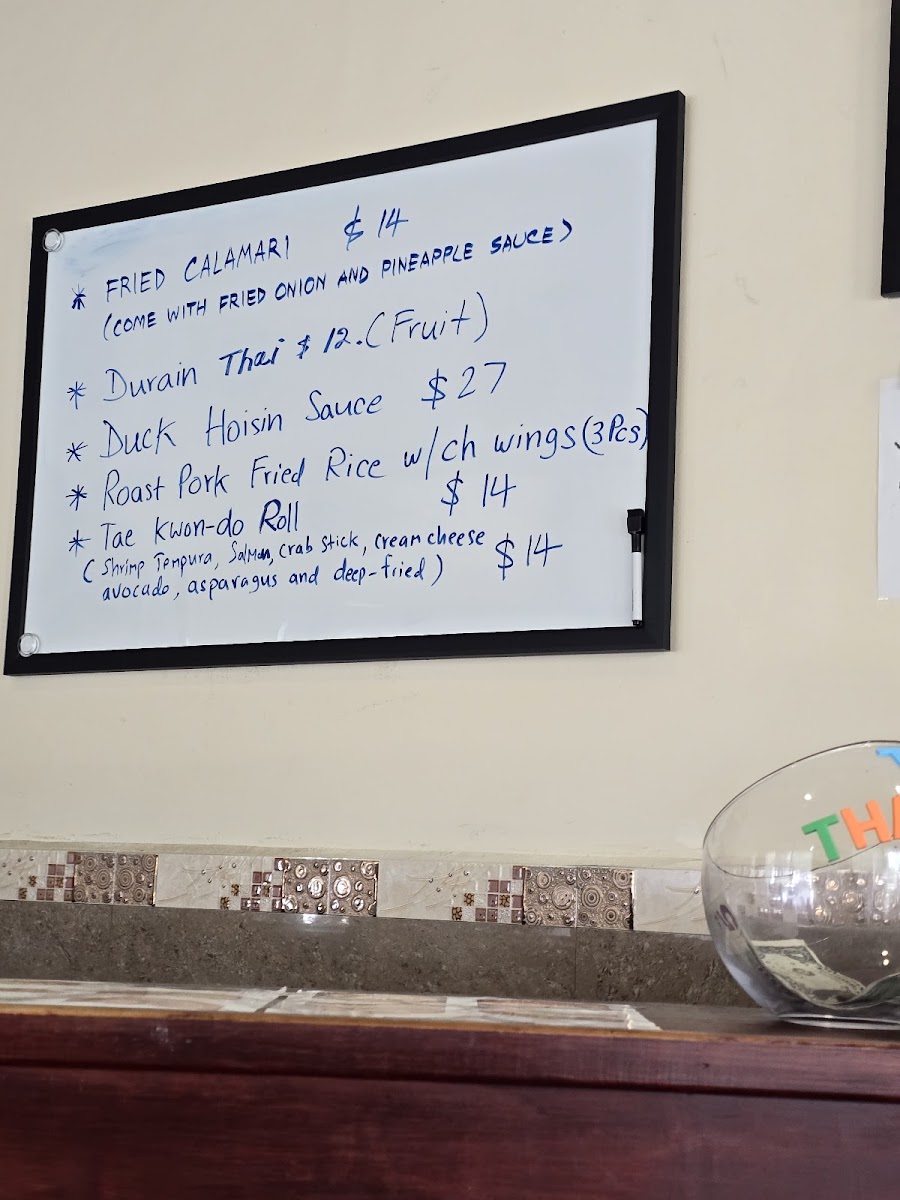 * FRIED CALAMARI $14
(COME WITH FRIED ONION AND PINEAPPLE SAUCE)
* Durain Thai $12. (Fruit)
* Duck Hoisin Sauce $27
* Roast Pork Fried Rice w/ch wings (3Pcs)
$14
* Tae Kwon-do Roll
(Shrimp Tempura, Salmon, crab stick, cream cheese
avocado, asparagus and deep-fried) $14
THA